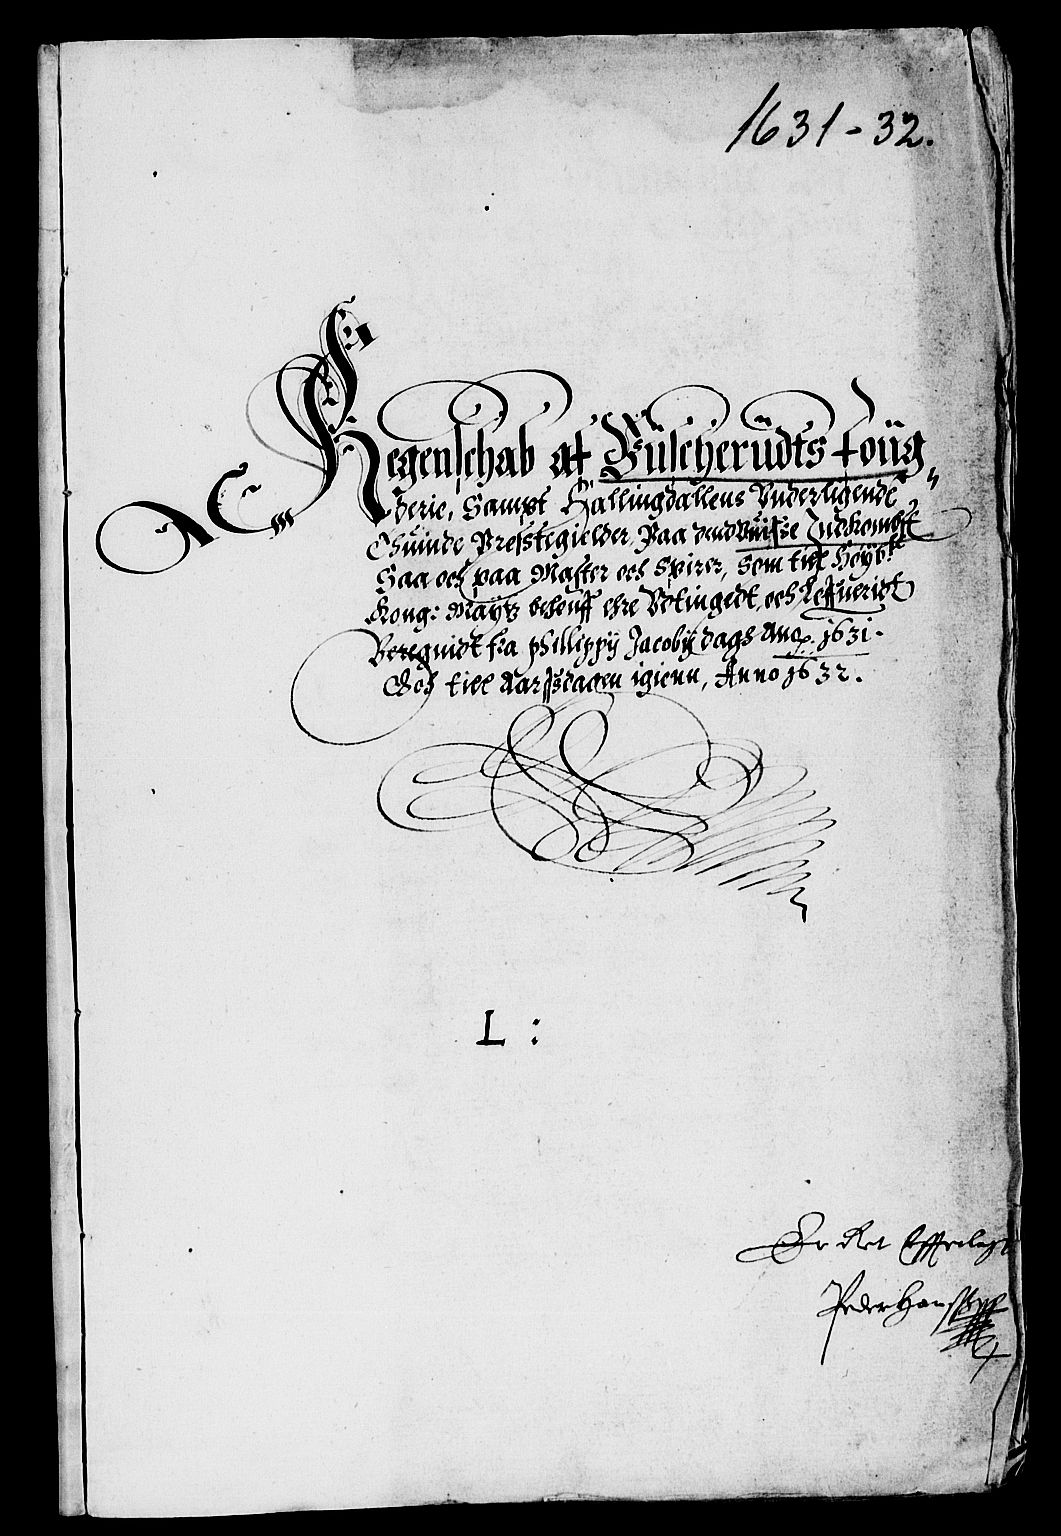 1631-32.
Regenschab af Buscherüdts foüg,,
derie, Sampt Hallingdallens Underligende
Thuinde Prestegielder, Paa dend Vuisse Indkombst
Saa och paa Master och Spirer, som till Høyb:
Kong: Maytz behouff ehre Betinget, och Leffueridt
Beregnidt fra Phillippij Jacobij dags Ano. 1631.
Och till Aarssdagen igienn, Anno 1632.
L :
Er Ret
Peder Hanss